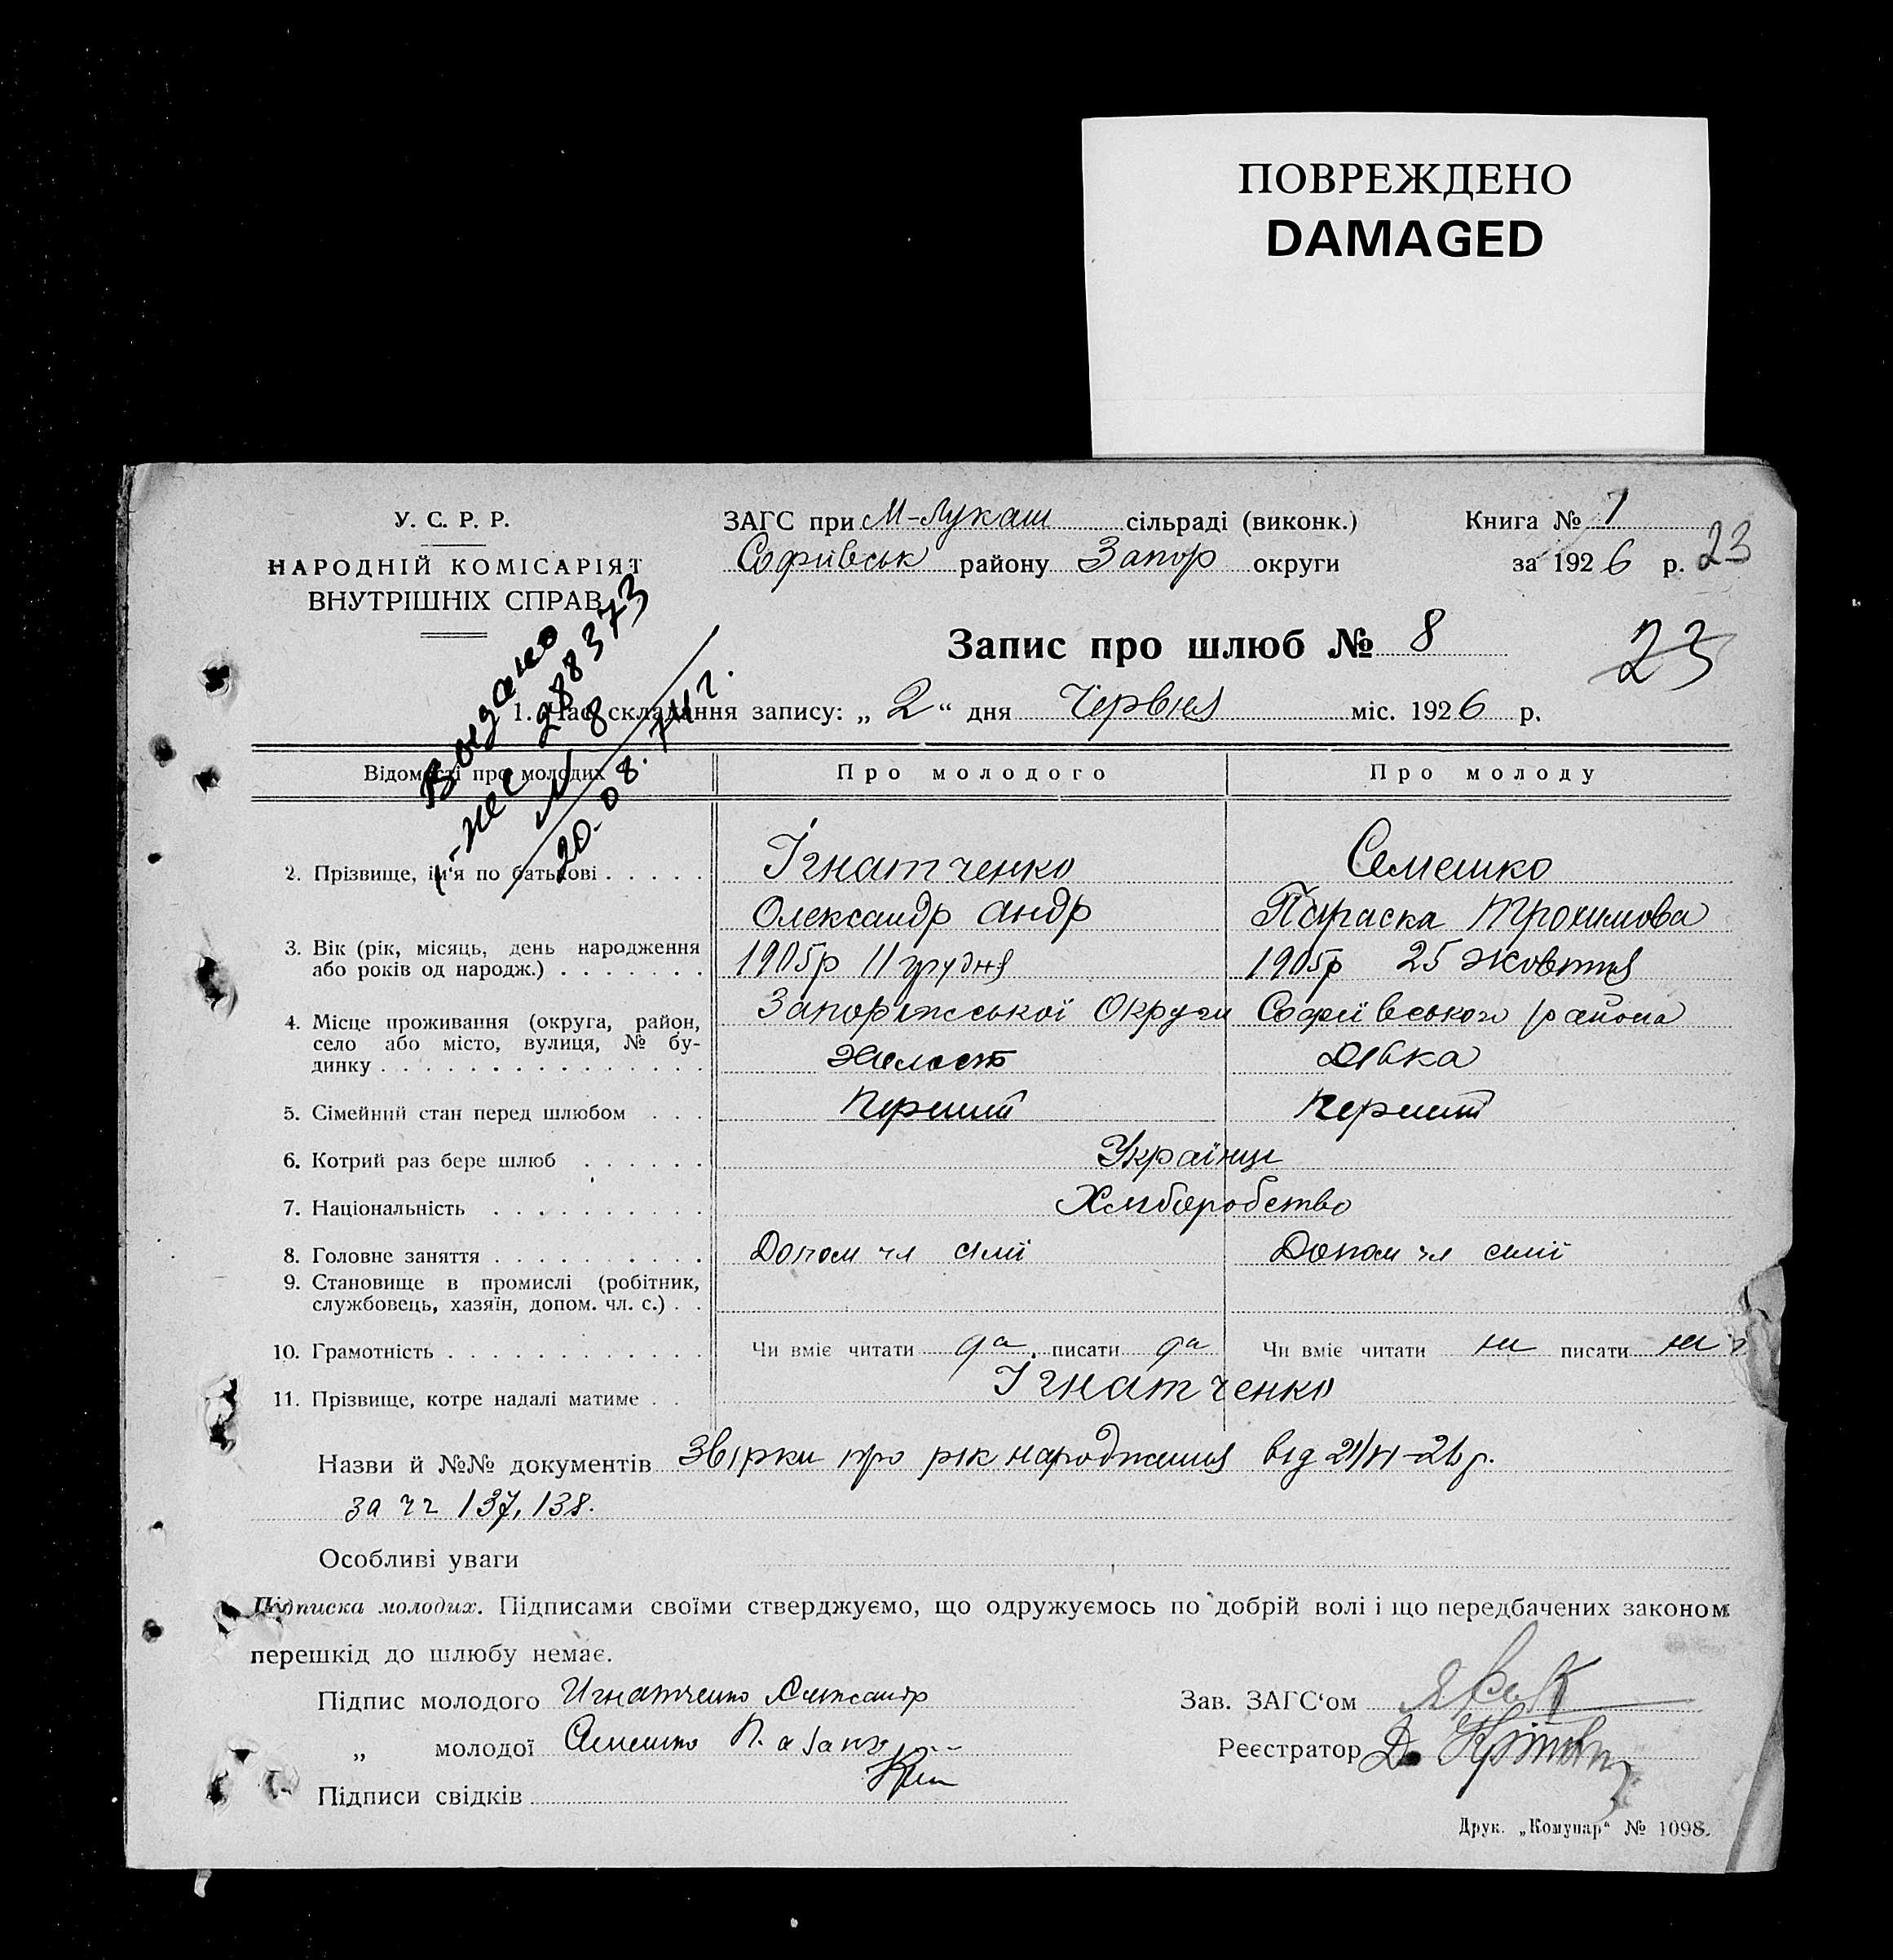 ПОВРЕЖДЕНО
DAMAGED
У. С. Р. Р.
НАРОДНІЙ КОМІСАРІЯТ
ВНУТРІШНІХ СПРАВ
ЗАГС при М-Лукаш сільраді (виконк.)
Софіївськ району Запор округи
Книга № 1
за 1926 р. 23
Запис про шлюб № 8
23
1. Час складання запису: „ 2 “ дня Червня міс. 1926 р.
288373
№ 8
20.08.74 г.
Відомості про молодих
Про молодого
Про молоду
2. Прізвище, ім'я по батькові
Ігнатченко
Семешко
Олександр Андр
Параска Трохимова
3. Вік (рік, місяць, день народження
або років од народж.)
1905р 11 грудня
1905р 25 жовтня
4. Місце проживання (округа, район,
село або місто, вулиця, № бу-
динку
Запоріжської Округи Софиївського района
Холост
Дівка
5. Сімейний стан перед шлюбом
Перший
Перший
6. Котрий раз бере шлюб
Українці
7. Національність
Хліборобство
8. Головне заняття
Допом чл сімї
Допом чл сімї
9. Становище в промислі (робітник,
службовець, хазяїн, допом. чл. с.)
10. Грамотність
Чи вміє читати да писати да
Чи вміє читати ні писати ні
11. Прізвище, котре надалі матиме
Ігнатченко
Назви й №№ документів Звірки про рік народження від 21/VI-26 р.
за чч 137, 138.
Особливі уваги
Підписка молодих. Підписами своїми стверджуємо, що одружуємось по добрій волі і що передбачених законом
перешкід до шлюбу немає.
Підпис молодого Игнатченко Александр
„ молодої Семешко П.
Підписи свідків
Зав. ЗАГС‘ом
Реєстратор Д.
Друк. „Комунар“ № 1098.